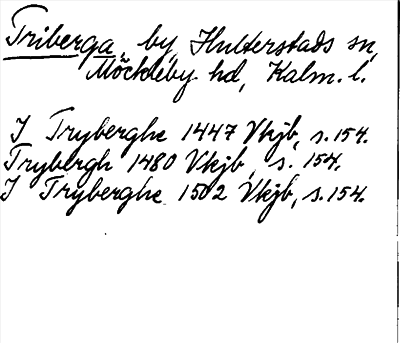 Triberga, by, Hulterstads sn,
Möckleby hd, Kalm. l.
I Tryberghe 1447 Vkjb, s. 154.
Trybergh 1480 Vkjb, s. 154.
I Tryberghe 1502 Vkjb, s. 154.